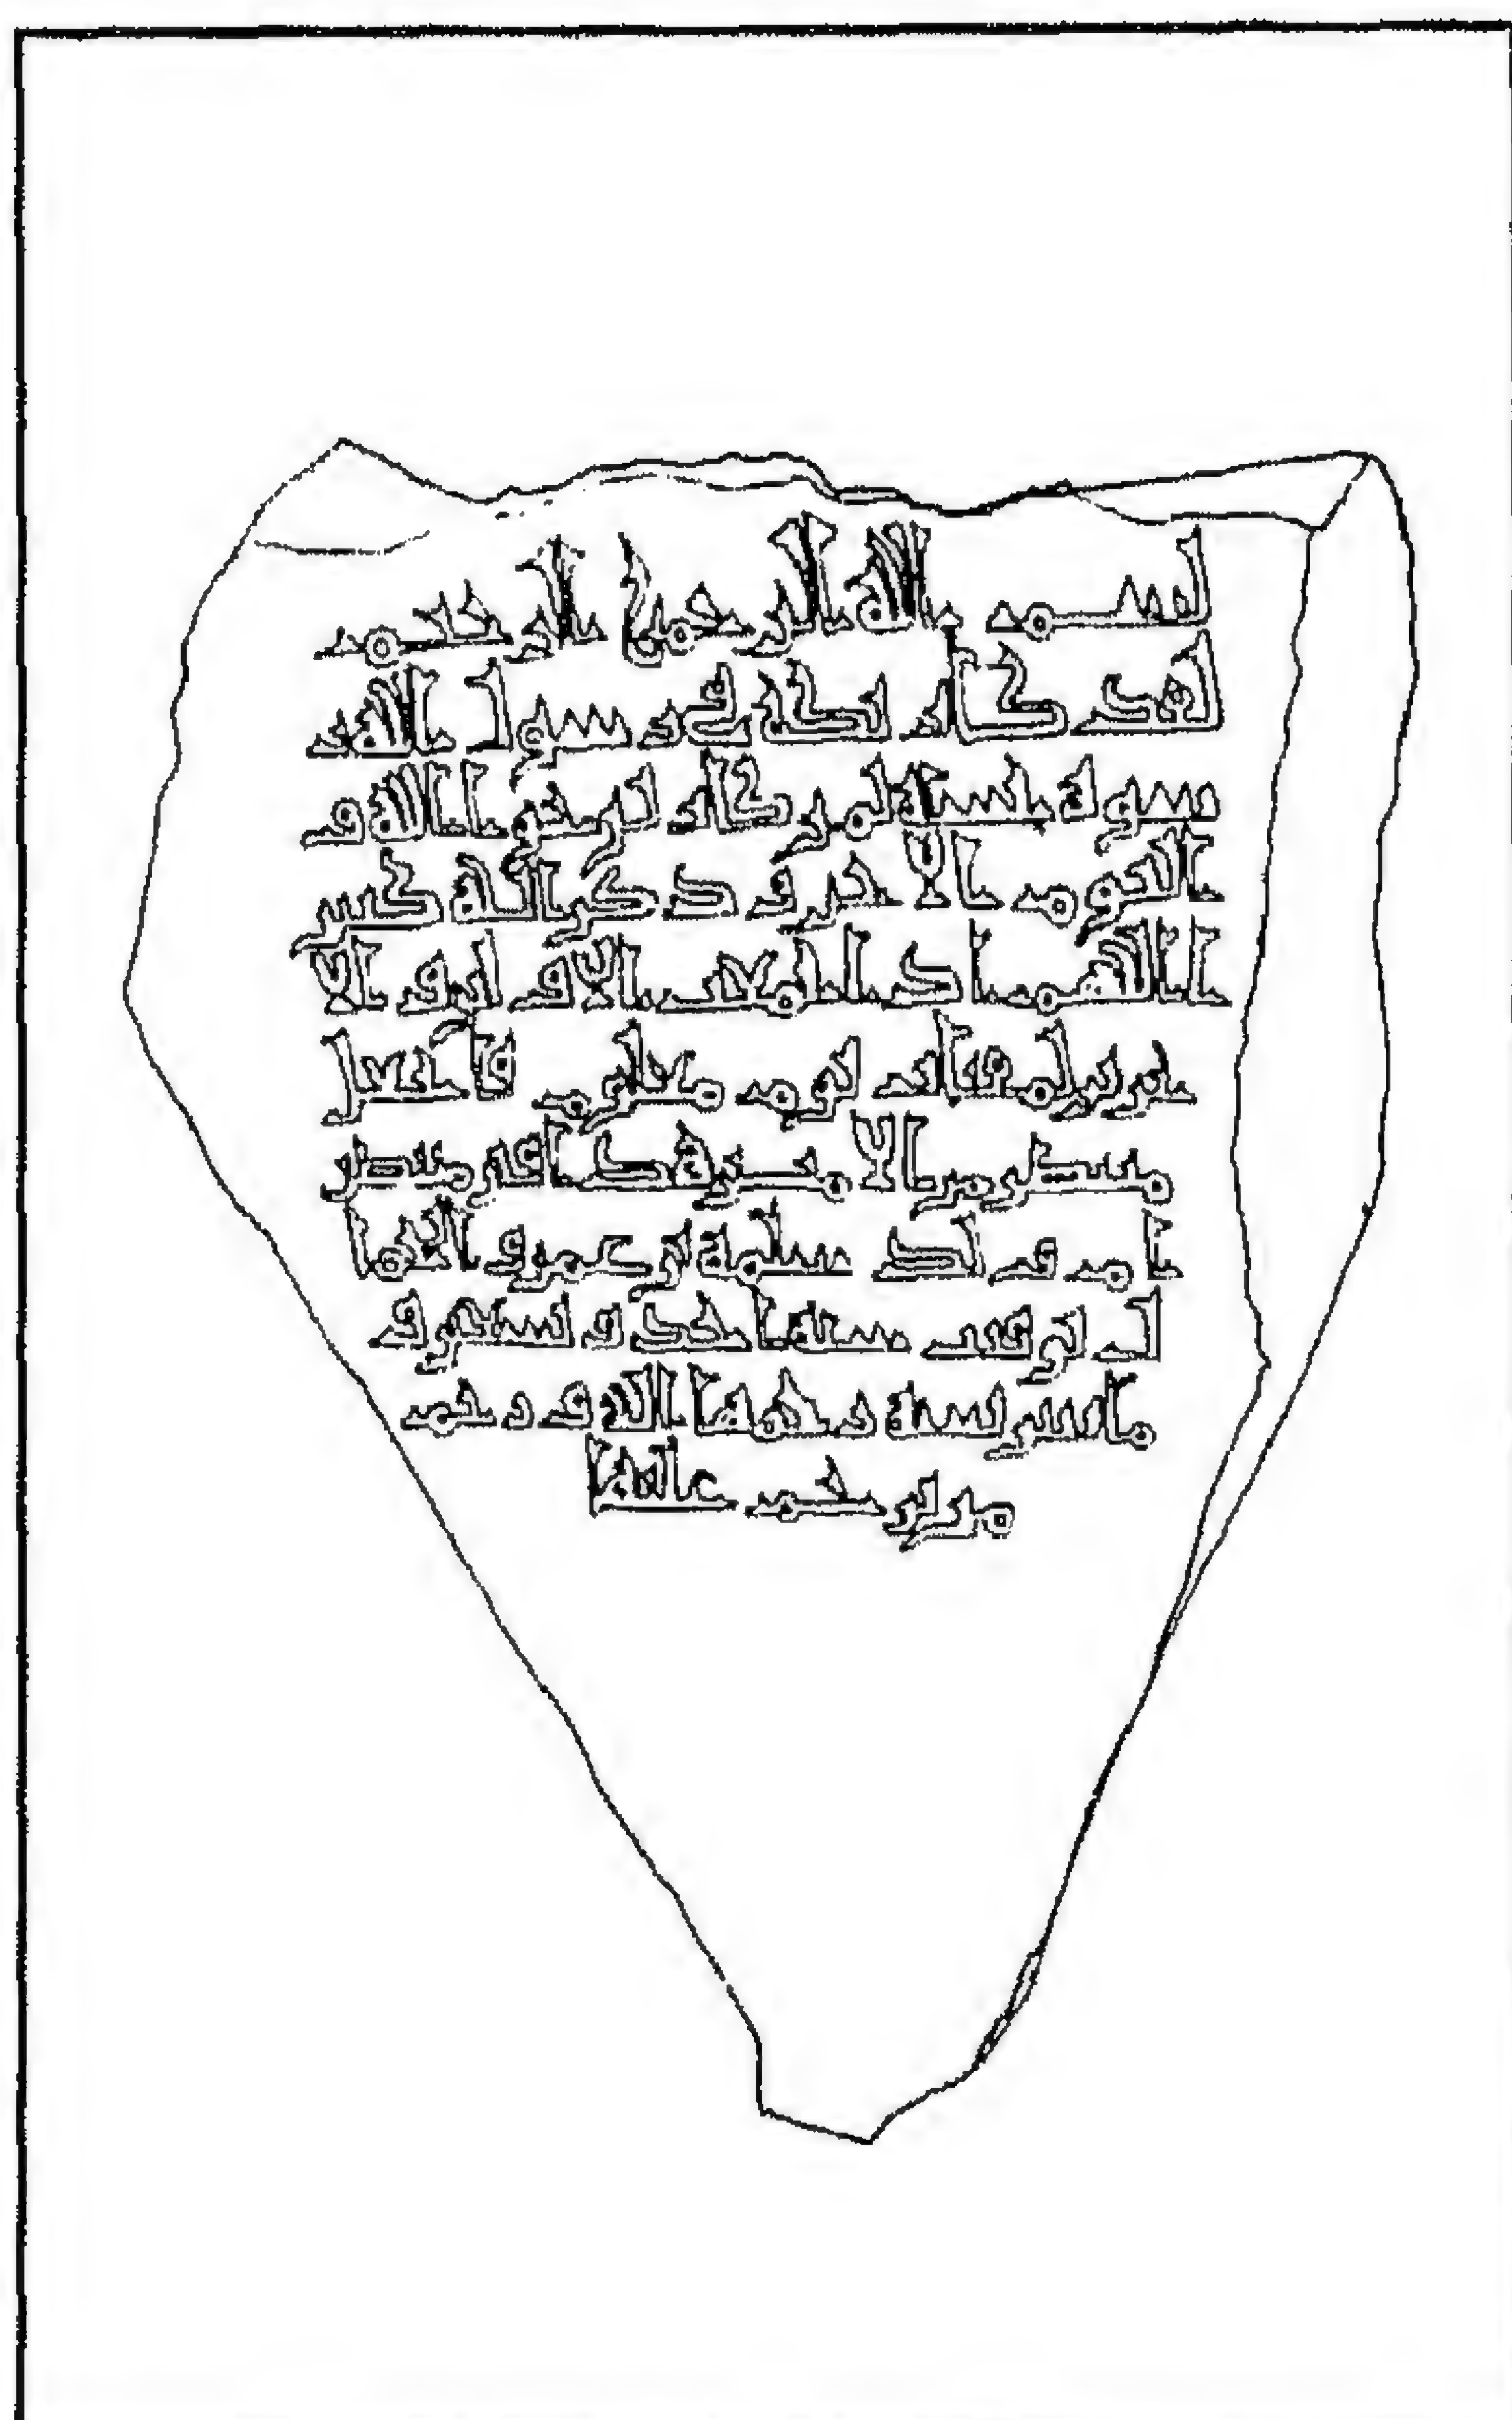 بسم الله الرحمن الرحيم
لقد كان لكم في رسول الله ا
سوة حسنة لمن كان يرجو الله و
اليوم الاخر وذكر الله كثير
ا اللهم اذا جمعت الاولين والا
خرين لميقات يوم معلوم فاجعل
سلمة بن عمرو
توفيت سنة احدى وتسعين و
مائتين سنة رحمها الله ورحم
من ترحم عليها